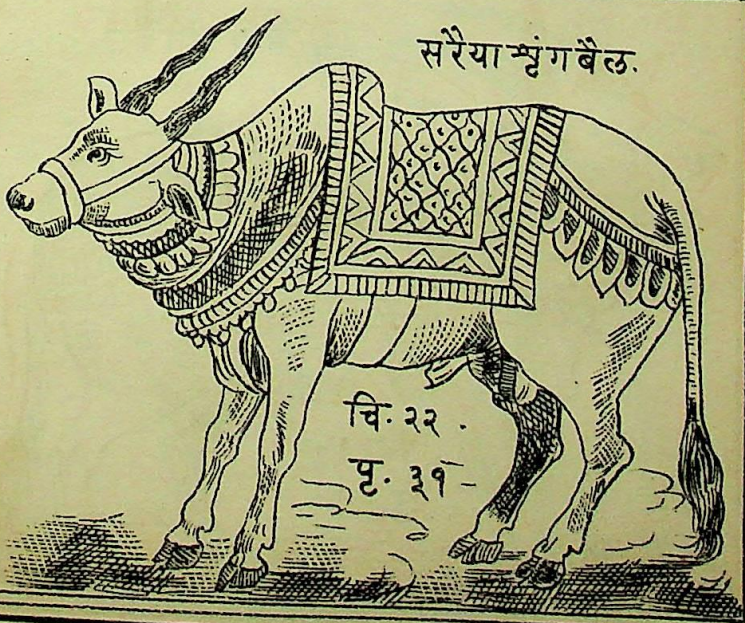 सरैया श्रृंग बैल.
चि. २२.
पृ. ३१